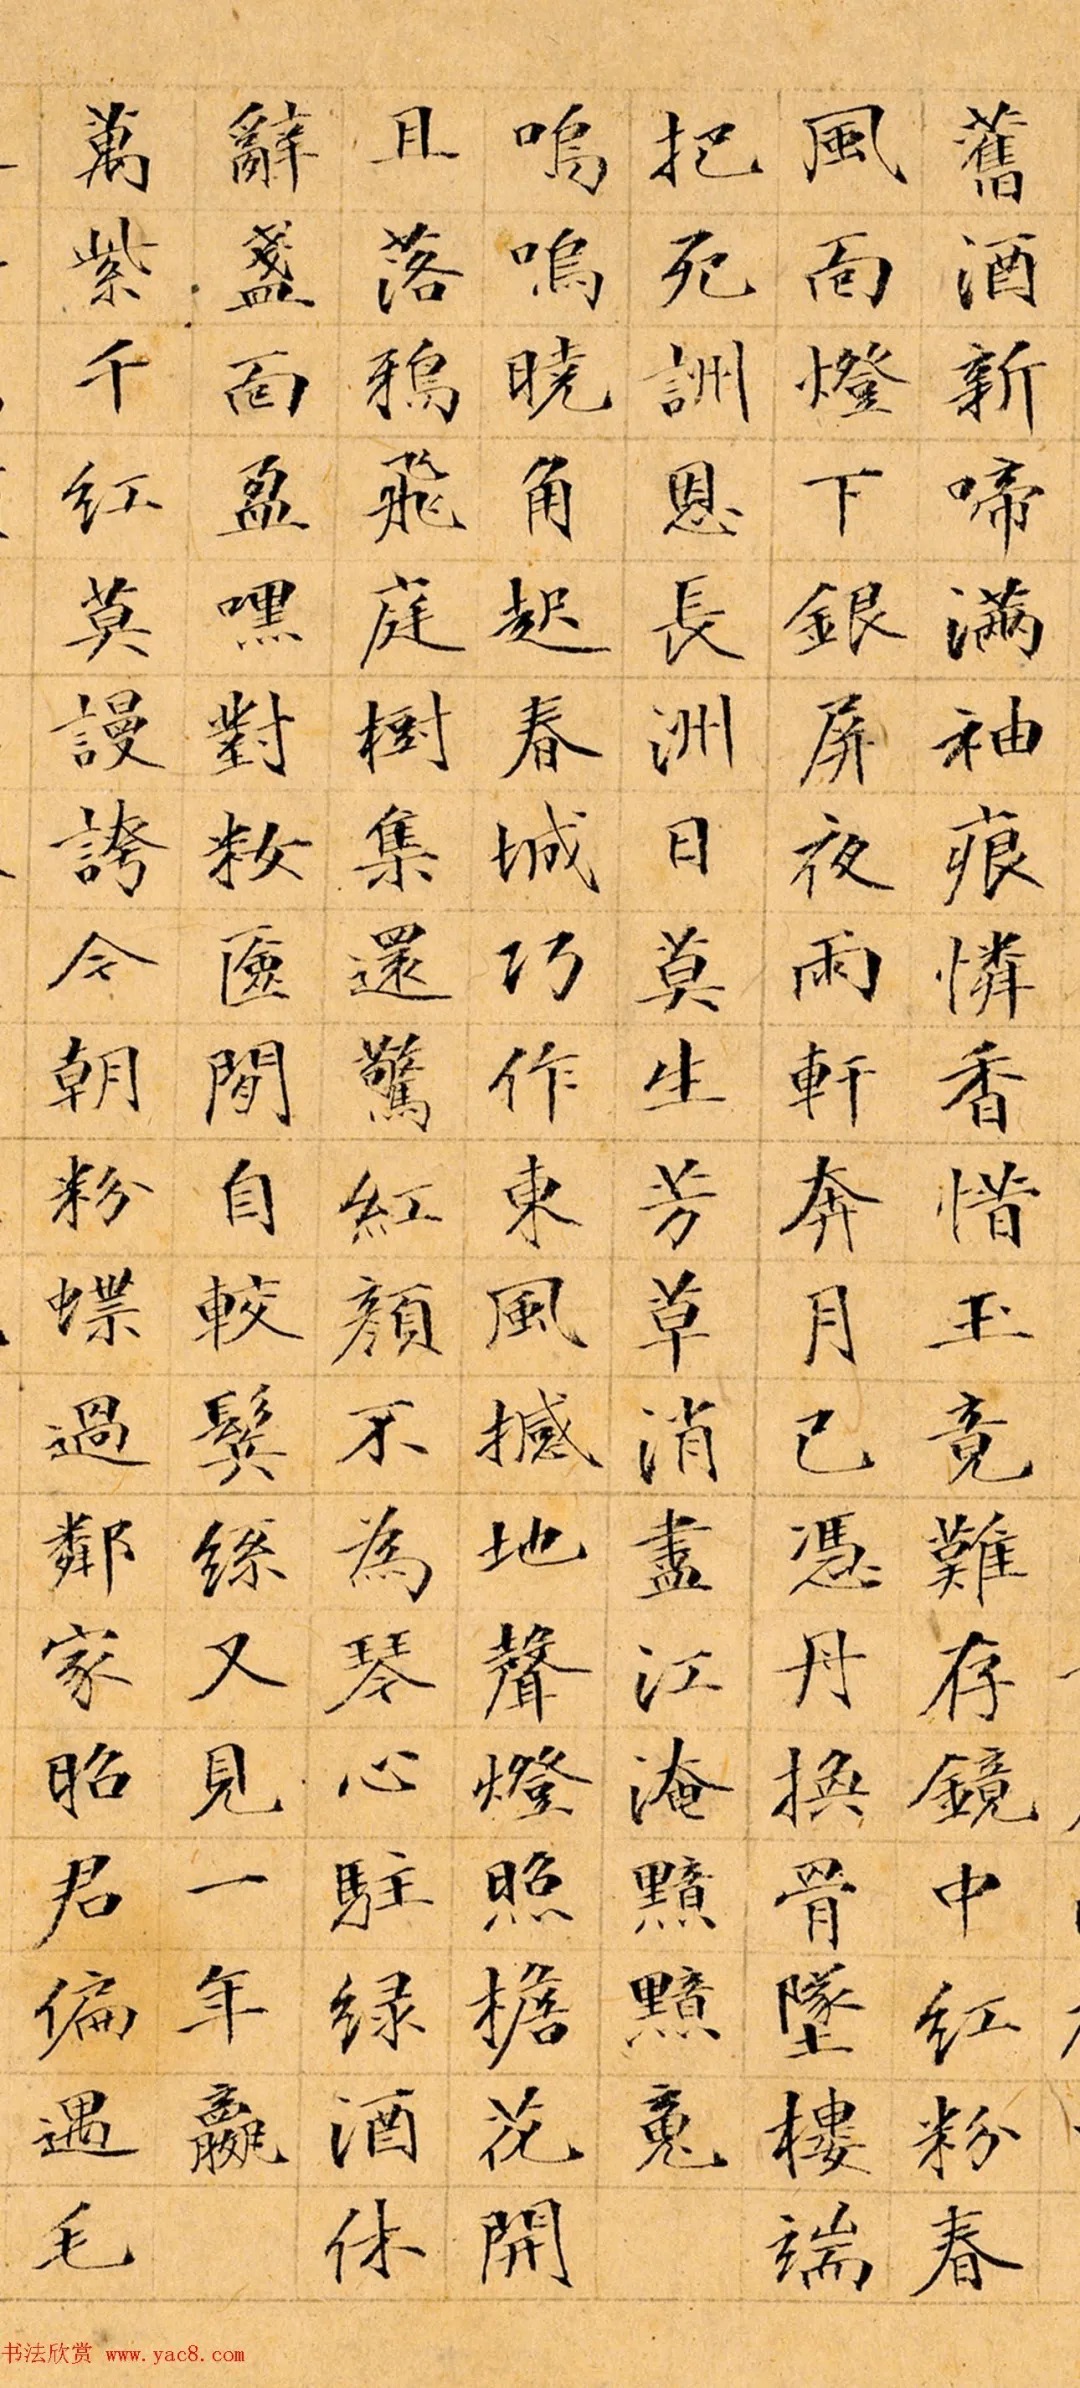 舊酒新啼滿袖痕憐香惜玉竟難存鏡中紅粉春
風面燈下銀屏夜雨軒奔月已憑丹換骨墜樓端
把死詶恩長洲日莫生芳草消盡江淹黯黯䰟
嗚嗚曉角起春城巧作東風撼地聲燈照檐花開
且落鴉飛庭樹集還驚紅顏不為琴心駐綠酒休
辭盞面盈嘿對粧匳閒自較鬂絲又見一年贏
萬紫千紅莫謾誇今朝粉蝶過鄰家昭君偏遇毛
书法欣赏 www.yac8.com